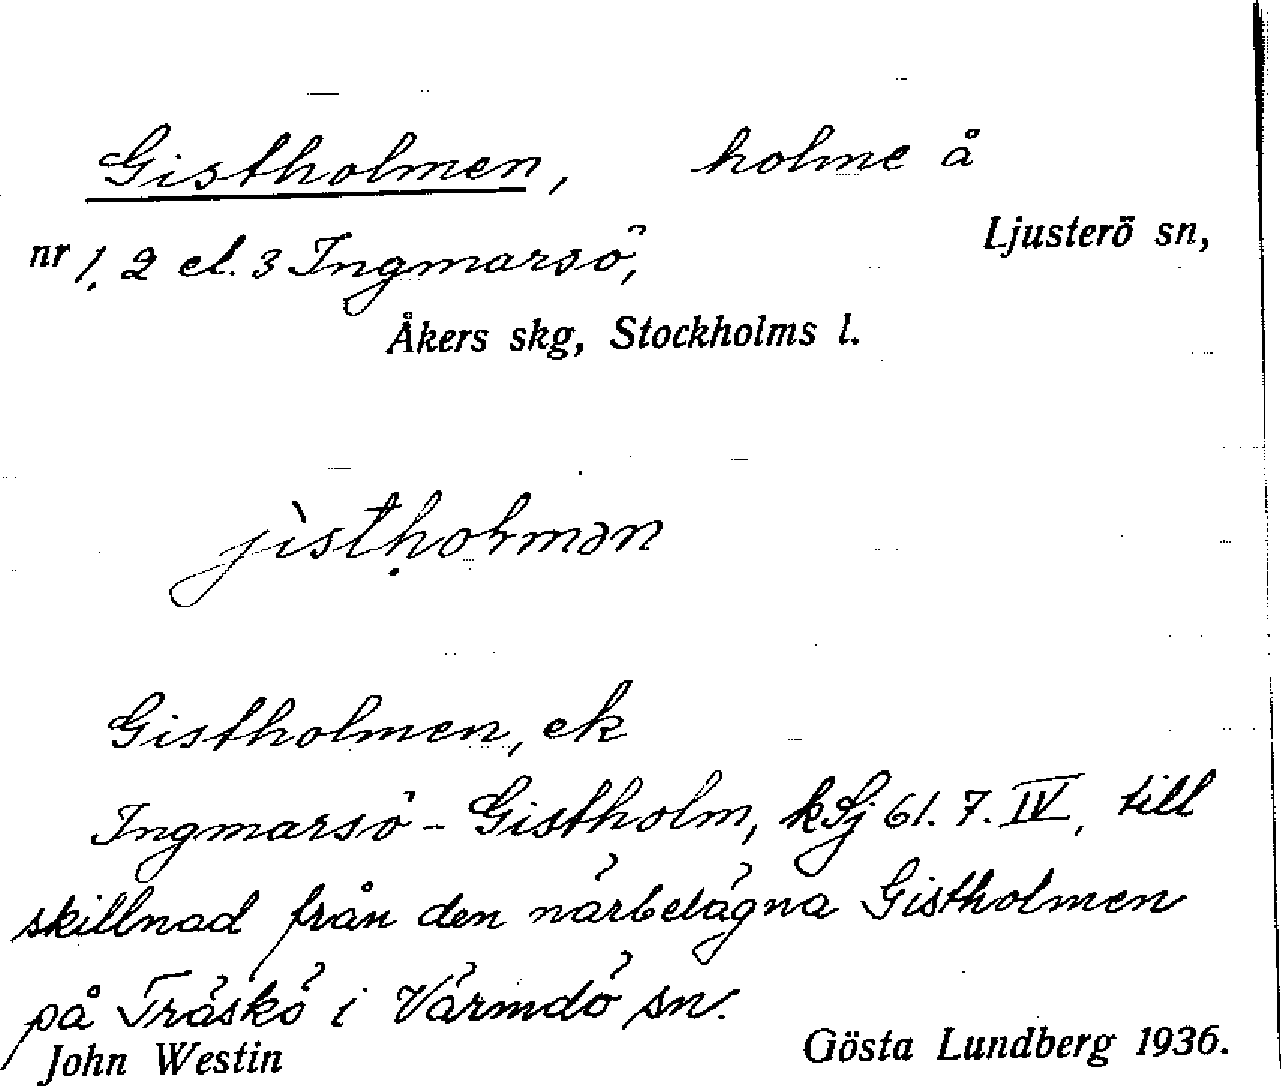 Gistholmen, holme å
nr 1, 2 el. 3 Ingmarsö, Ljusterö sn,
Åkers skg, Stockholms l.
jìstḥolmən
Gistholmen, ek
Ingmarsö - Gistholm, kSj 61. 7. IV, till
skillnad från den närbelägna Gistholmen
på Träskö i Värmdö sn.
John Westin Gösta Lundberg 1936.